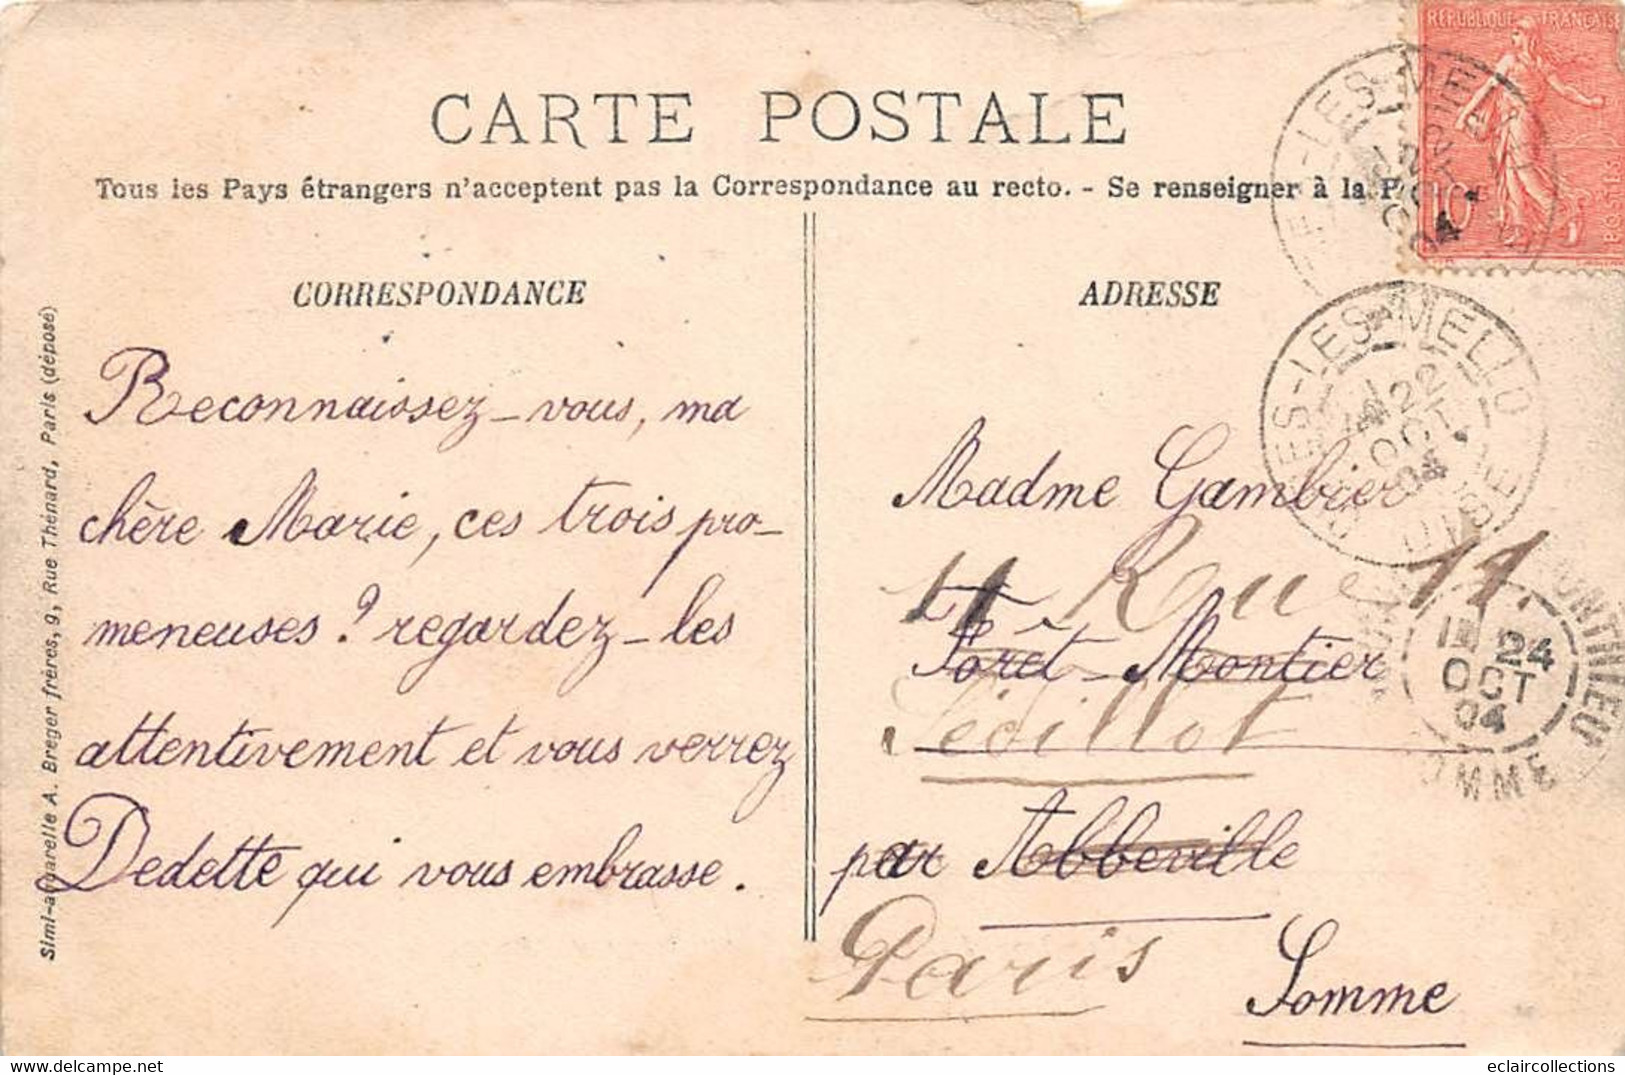 RÉPUBLIQUE FRANÇAISE
10
POSTES
CARTE POSTALE
Tous les Pays étrangers n'acceptent pas la Correspondance au recto. - Se renseigner à la P
CORRESPONDANCE
Reconnaissez-vous, ma
chère Marie, ces trois pro-
meneuses ? regardez-les
attentivement et vous verrez
Dedette qui vous embrasse.
Simi-aquarelle A. Breger frères, 9, Rue Thénard, Paris (déposé)
ADRESSE
Madme Gambier
11 Rue
Forêt-Montier
Sédillot
par Abbeville
Paris
Somme
ES-LES-MELLO
22
OCT
04
OISE
24
OCT
04
SOMME
eclaircollections